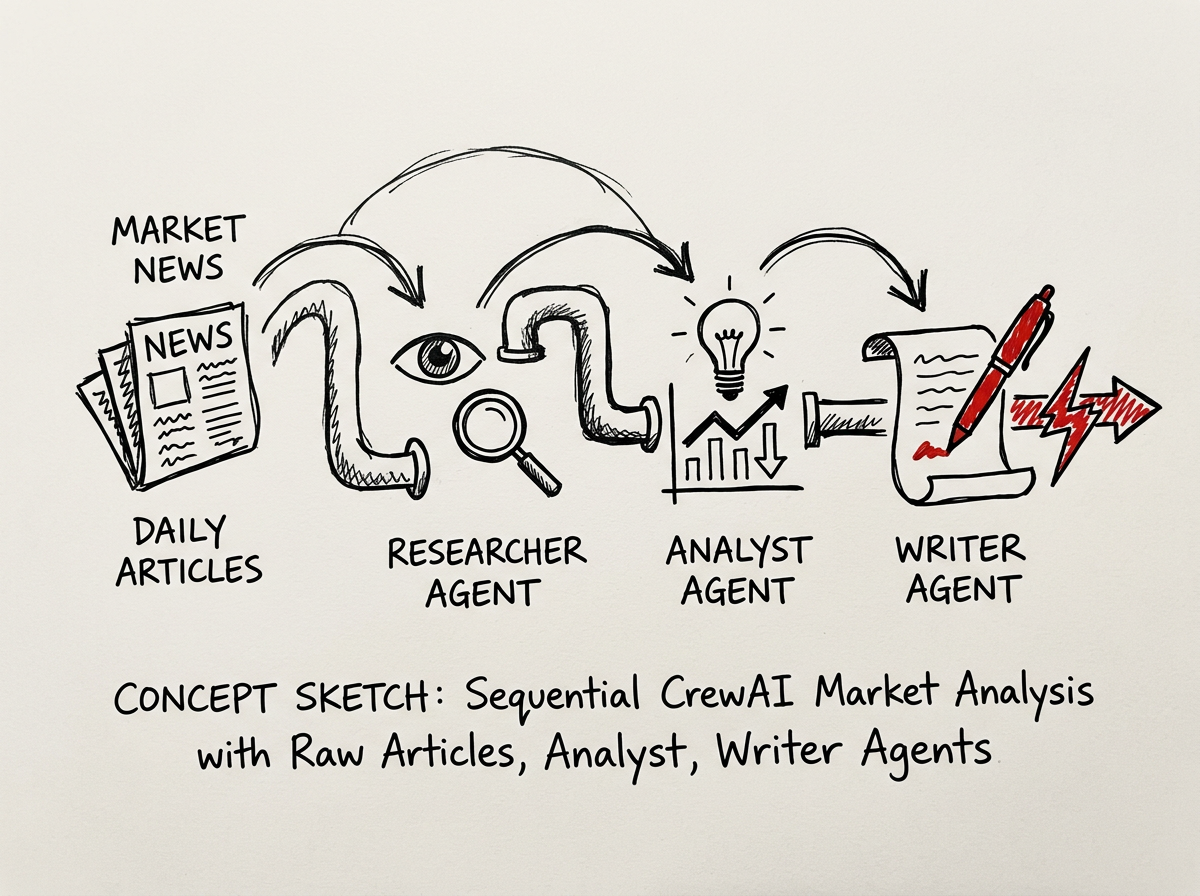 MARKET
NEWS
NEWS
DAILY
ARTICLES
RESEARCHER
AGENT
ANALYST
AGENT
WRITER
AGENT
CONCEPT SKETCH: Sequential CrewAI Market Analysis
with Raw Articles, Analyst, Writer Agents